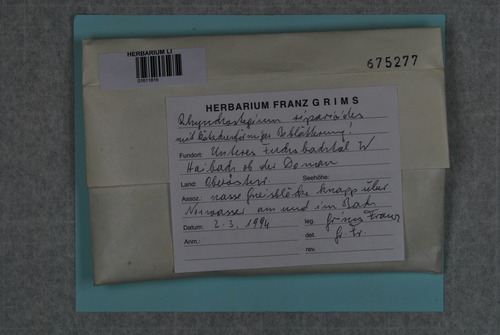 HERBARIUM LI
675277
HERBARIUM FRANZ GRIMS
Rhynchostegium riparioides
mit kätzchenförmiger Beblätterung!
Fundort: Unteres Fuchsbachtal W
Haibach ob der Donau
Land: Oberösterr. Seehöhe:
Assoz.: nasse Gneisblöcke knapp über
Neuwasser am und im Bach
Datum: 2.3.1994 leg. Grims Franz
Anm.: det. Gr. Fr.
rev.